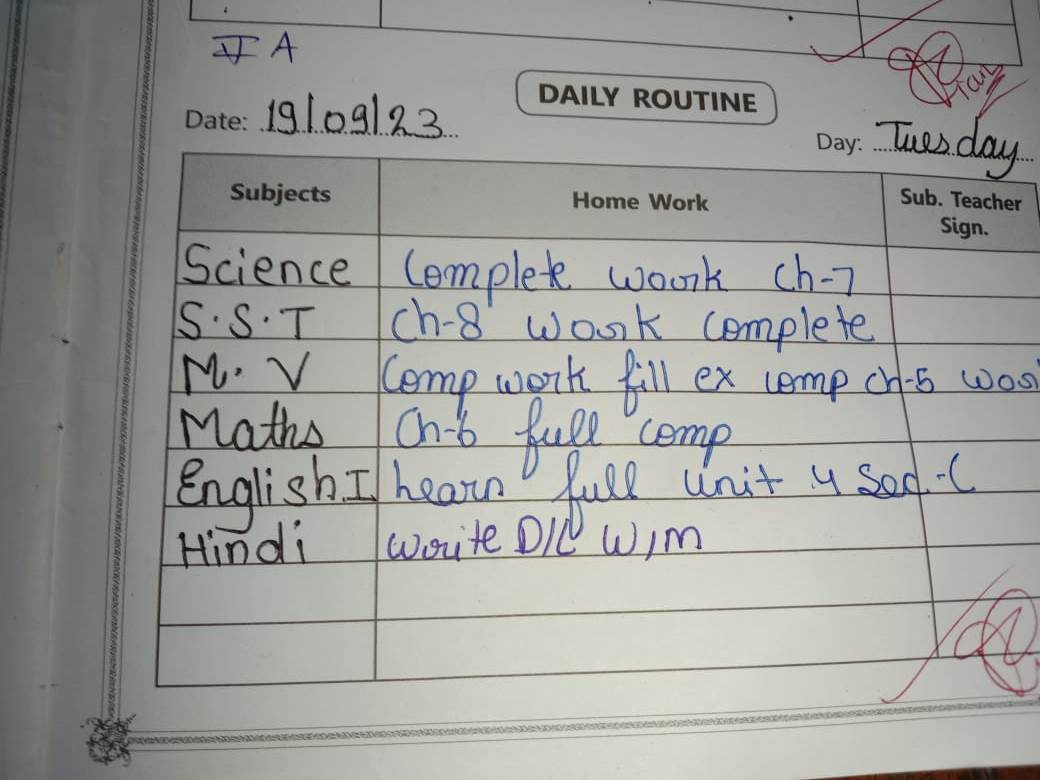 V A
DAILY ROUTINE
Date: 19/09/23
Day: Tuesday
Subjects Home Work Sub. Teacher Sign.
Science Complete work Ch-7
S.S.T Ch-8 work complete
M.V Comp work fill ex comp ch-5
Maths Ch-6 full comp
English.I learn full unit 4 Sec-C
Hindi Write D/L W/m